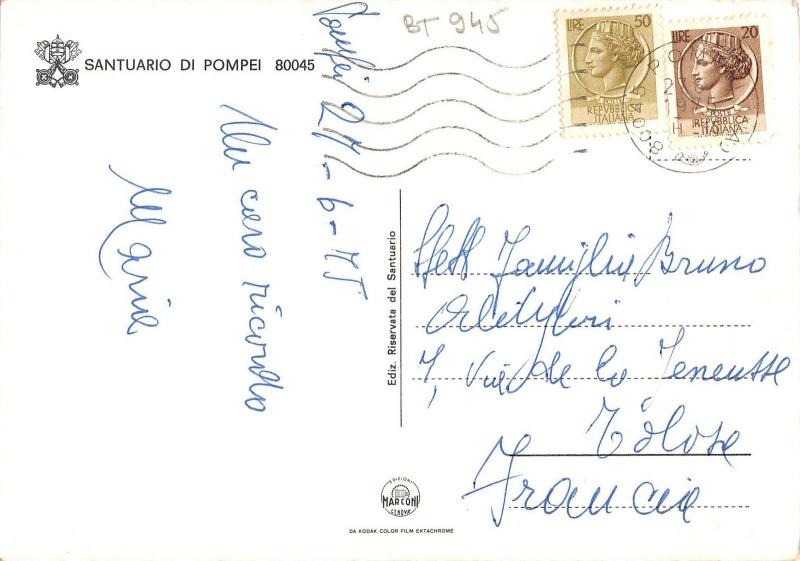 BT 945
SANTUARIO DI POMPEI 80045
LIRE 50
POSTE
REPVBBLICA
ITALIANA
LIRE 20
POSTE
REPVBBLICA
ITALIANA
Pompei 27-6-75
Un caro ricordo
Maria
Ediz. Riservata del Santuario
Famiglia Bruno
7, Via de la
Tolosa
Francia
EDIZIONI
MARCONI
GENOVA
DA KODAK COLOR FILM EKTACHROME